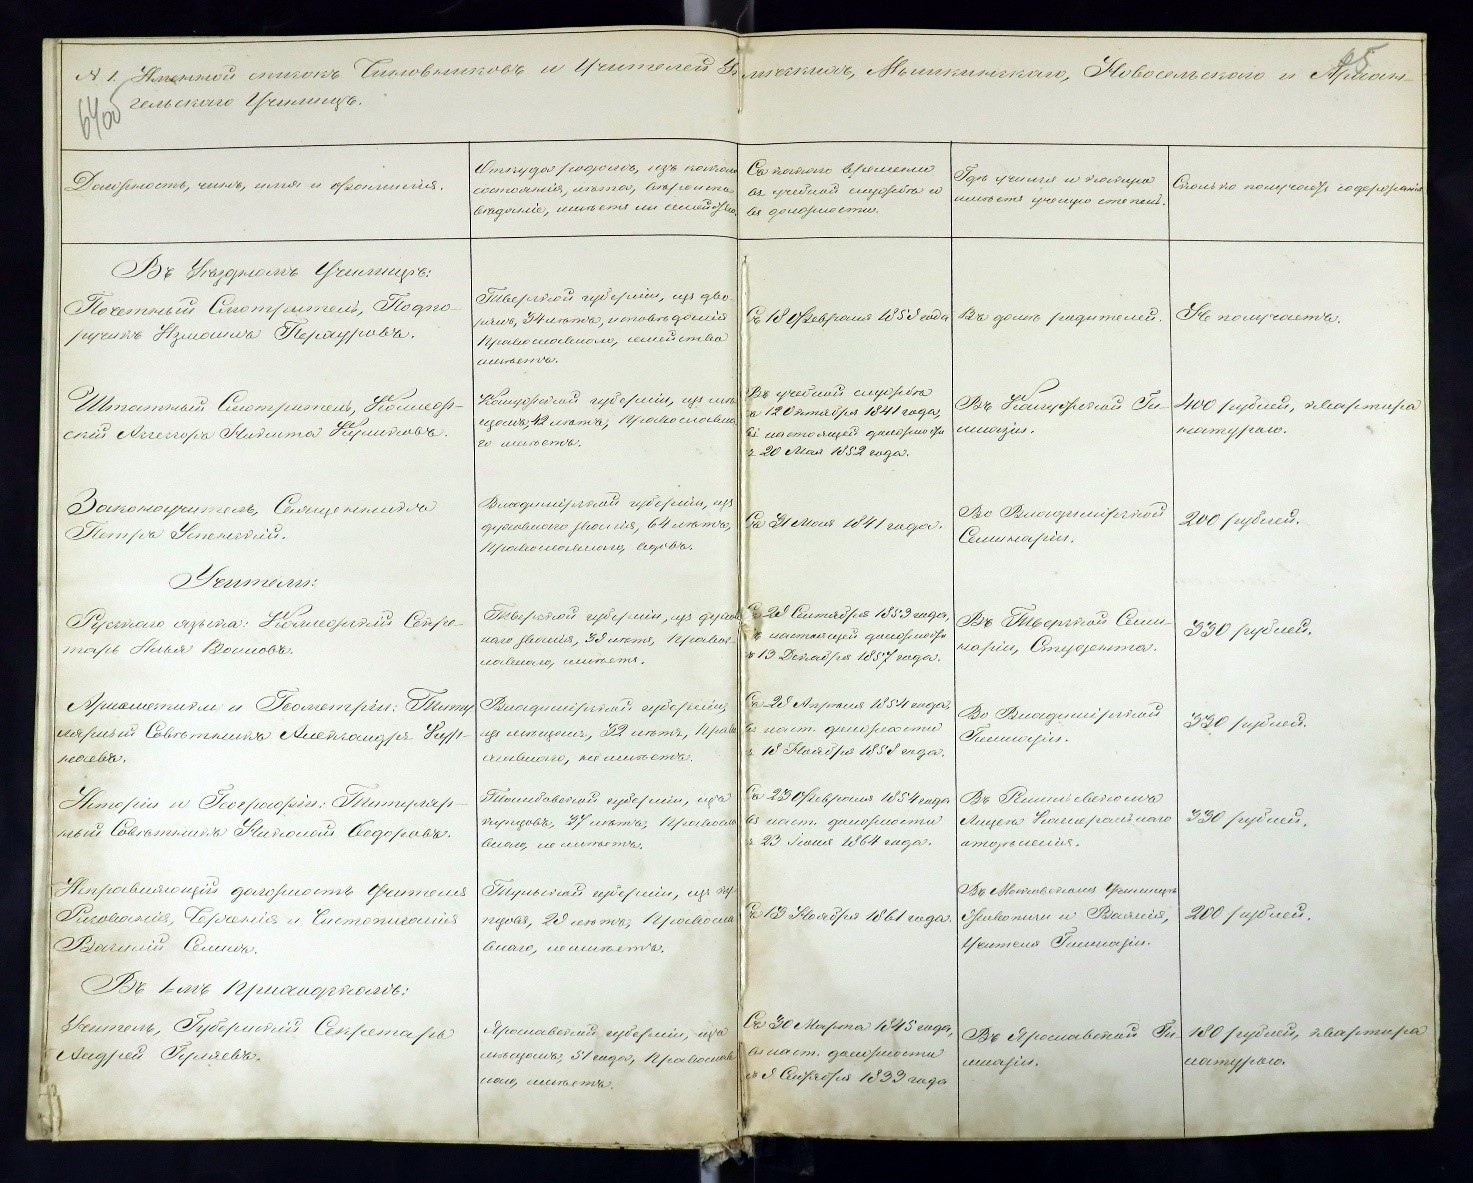 № 1. Именной списокъ Чиновниковъ и Учителей Угличскихъ, Мышкинскаго, Новосельскаго и Архан-
гельскаго Училищъ.
64об
95
Должность, чинъ, имя и фамилія.
Откуда родомъ, изъ какого
состоянія, лѣта, вѣроиспо-
вѣданіе, имѣетъ ли семейство.
Съ какого времени
въ учебной службѣ и
въ должности.
Гдѣ учился и какую
имѣетъ ученую степень.
Сколько получаетъ содержанія
Въ Уѣздномъ Училищѣ:
Почетный Смотритель, Подпо-
ручикъ Измаилъ
Тверской губерніи, изъ дво-
рянъ, 34 лѣтъ, исповѣданія
Православнаго, семейство
имѣетъ.
Съ 18 Февраля 1858 года
Въ домѣ родителей.
Не получаетъ.
Штатный Смотритель, Коллеж-
скій Ассесоръ Никита Куликовъ.
Калужской губерніи, изъ мѣ-
щанъ, 42 лѣтъ, Православна-
го имѣетъ.
Въ учебной службѣ
съ 12 Октября 1841 года,
въ настоящей должности
съ 20 Мая 1852 года.
Въ Калужской Ги-
мназіи.
400 рублей, квартира
натурою.
Законоучитель, Священникъ
Петръ Успенскій.
Владимірской губерніи, изъ
духовнаго званія, 64 лѣтъ,
Православнаго, вдовъ.
Съ 31 Мая 1841 года.
Во Владимірской
Семинаріи.
200 рублей.
Учители:
Русскаго языка: Коллежскій Секре-
тарь Илья Воиновъ.
Тверской губерніи, изъ духов-
наго званія, 38 лѣтъ, Правос-
лавнаго, имѣетъ.
Съ 28 Сентября 1853 года,
въ настоящей должности
съ 13 Декабря 1857 года.
Въ Тверской Семи-
наріи, Студентъ.
330 рублей.
Ариѳметики и Геометріи: Титу-
лярный Совѣтникъ Александръ
Владимірской губерніи,
изъ мѣщанъ, 32 лѣтъ, Право-
славнаго, не имѣетъ.
Съ 28 Апрѣля 1854 года,
въ наст. должности
съ 18 Ноября 1858 года.
Во Владимірской
Гимназіи.
330 рублей.
Исторіи и Географіи: Титуляр-
ный Совѣтникъ Николай Ѳедоровъ.
Тамбовской губерніи, изъ
купцовъ, 37 лѣтъ, Правосла-
внаго, не имѣетъ.
Съ 23 Февраля 1854 года
въ наст. должности
съ 23 Іюня 1864 года.
Въ Ришельевскомъ
Лицеѣ Камеральнаго
отдѣленія.
330 рублей.
Исправляющій должность Учителя
Рисованія, Черченія и Чистописанія
Василій Семинъ.
Тульской губерніи, изъ ку-
пцовъ, 28 лѣтъ, Правосла-
внаго, не имѣетъ.
Съ 13 Ноября 1861 года.
Въ Московскомъ Училищѣ
Живописи и Ваянія,
Учителя Гимназіи.
200 рублей.
Въ 1-мъ Приходскомъ:
Учитель, Губернскій Секретарь
Андрей Гуляевъ.
Ярославской губерніи, изъ
мѣщанъ, 51 года, Православ-
наго, имѣетъ.
Съ 30 Марта 1845 года,
въ наст. должности
съ 8 Октября 1833 года
Въ Ярославской Ги-
мназіи.
180 рублей, квартира
натурою.